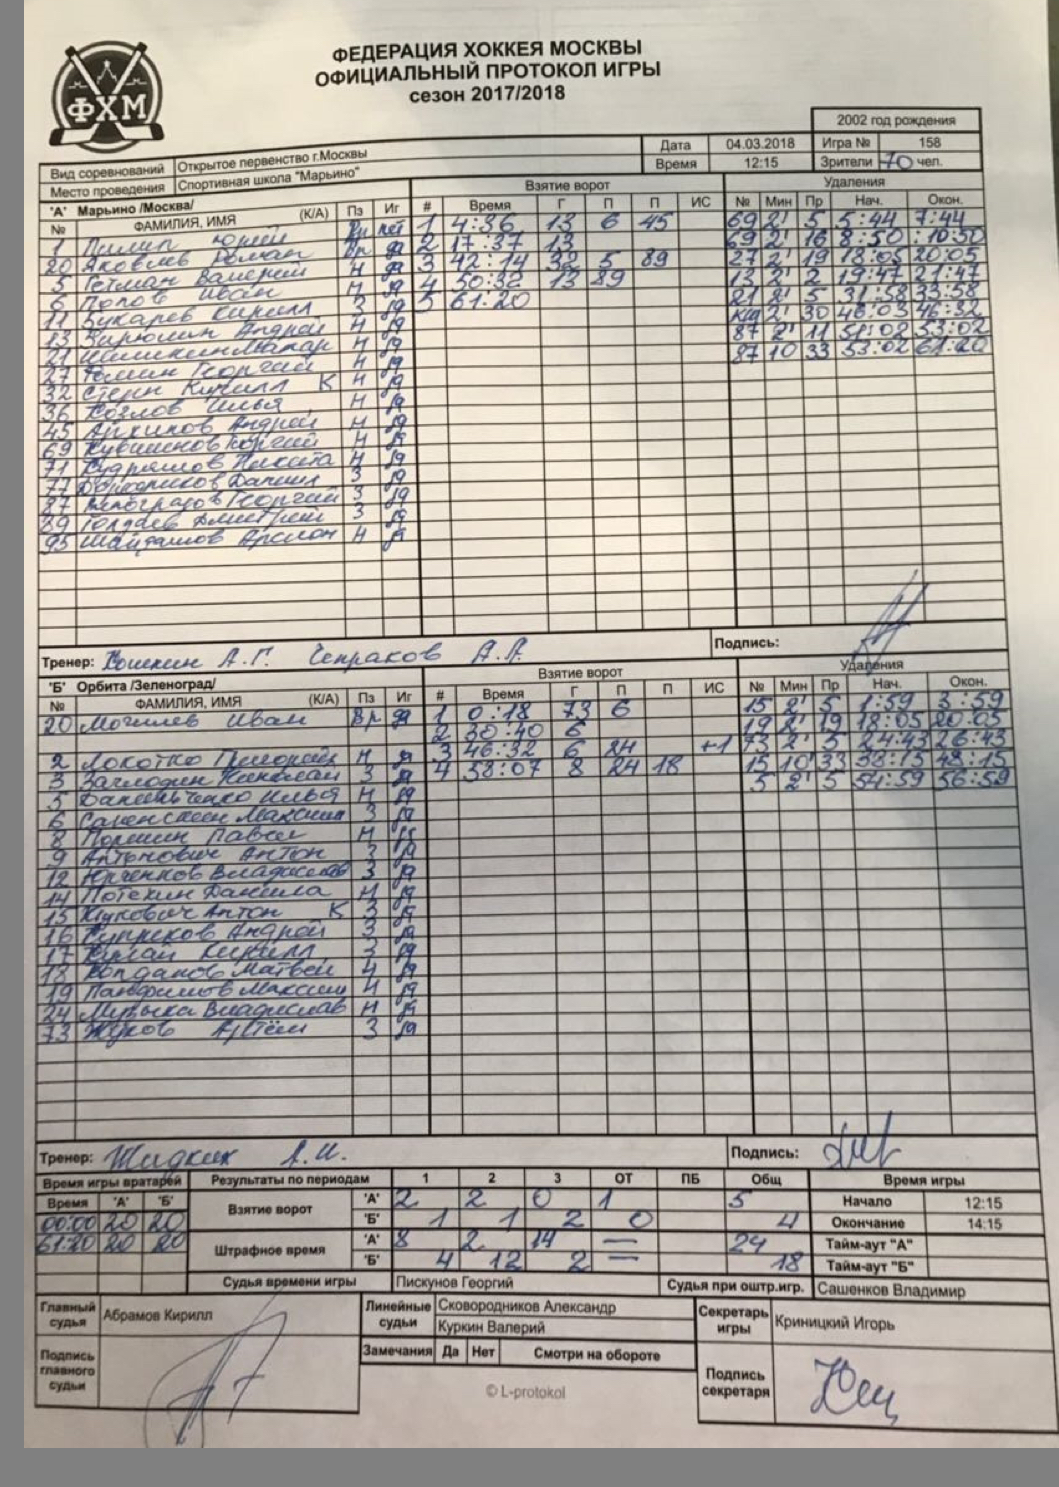 ФЕДЕРАЦИЯ ХОККЕЯ МОСКВЫ
ОФИЦИАЛЬНЫЙ ПРОТОКОЛ ИГРЫ
сезон 2017/2018
ФХМ
2002 год рождения
Вид соревнований Открытое первенство г.Москвы Дата 04.03.2018 Игра № 158
Место проведения Спортивная школа "Марьино" Время 12:15 Зрители 70 чел.
'А' Марьино /Москва/ Взятие ворот Удаления
№ ФАМИЛИЯ, ИМЯ (К/А) Пз Иг # Время Г П П ИС № Мин Пр Нач. Окон.
1 Пилип Юрий Вр нет 1 4:36 13 6 45 69 2' 5 5:44 7:44
20 Яковлев Роман Вр да 2 17:37 13 69 2' 16 8:50 10:50
5 Гетман Валерий Н да 3 42:14 32 5 89 27 2' 19 18:05 20:05
6 Попов Иван Н да 4 50:32 13 89 13 2' 2 19:47 21:47
11 Букарев Кирилл З да 5 61:20 21 2' 5 31:58 33:58
13 Андрей Н да 2' 30 46:03 46:32
21 Шишкин Н да 87 2' 11 51:02 53:02
27 Фомин Георгий Н да 87 10 33 53:02 61:20
32 Стерн Кирилл К Н да
36 Козлов Илья Н да
45 Архипов Андрей Н да
69 Кувшинов Георгий Н да
71 Кудряшов Никита Н да
77 Даниил З да
87 Виноградов Георгий З да
89 Голдаев Дмитрий З да
95 Шайдашов Арслон Н да
Тренер: Кошкин А.Г. Чепраков А.А. Подпись:
'Б' Орбита /Зеленоград/ Взятие ворот Удаления
№ ФАМИЛИЯ, ИМЯ (К/А) Пз Иг # Время Г П П ИС № Мин Пр Нач. Окон.
20 Могилев Иван Вр да 1 0:18 73 6 15 2' 5 1:59 3:59
2 30:40 6 19 2' 19 18:05 20:05
2 Локотко Григорий Н да 3 46:32 6 24 +1 73 2' 5 24:43 26:43
3 Заглодин Николай З да 4 58:07 8 24 18 15 10' 33 38:15 48:15
5 Данильченко Илья Н да 5 2' 5 54:59 56:59
6 Максим З да
8 Поршин Павел Н да
9 Антонович Антон З да
12 Юрченков Владислав З да
14 Потехин Данила Н да
15 Жукович Антон К З да
16 Купреков Андрей З да
17 Кирилл З да
18 Колданов Матвей Н да
19 Панфилов Максим Н да
24 Мурыка Владислав Н да
73 Жуков Артём З да
Тренер: Жидких А.И. Подпись:
Время игры вратарей Результаты по периодам 1 2 3 ОТ ПБ Общ Время игры
Время 'А' 'Б' Взятие ворот 'А' 2 2 0 1 5 Начало 12:15
00:00 20 20 'Б' 1 1 2 0 4 Окончание 14:15
61:20 20 20 Штрафное время 'А' 8 2 14 — 24 Тайм-аут "А"
'Б' 4 12 2 — 18 Тайм-аут "Б"
Судья времени игры Пискунов Георгий Судья при оштр.игр. Сашенков Владимир
Главный судья Абрамов Кирилл Линейные судьи Сковородников Александр Секретарь игры Криницкий Игорь
Куркин Валерий
Подпись главного судьи Замечания Да Нет Смотри на обороте Подпись секретаря
© L-protokol